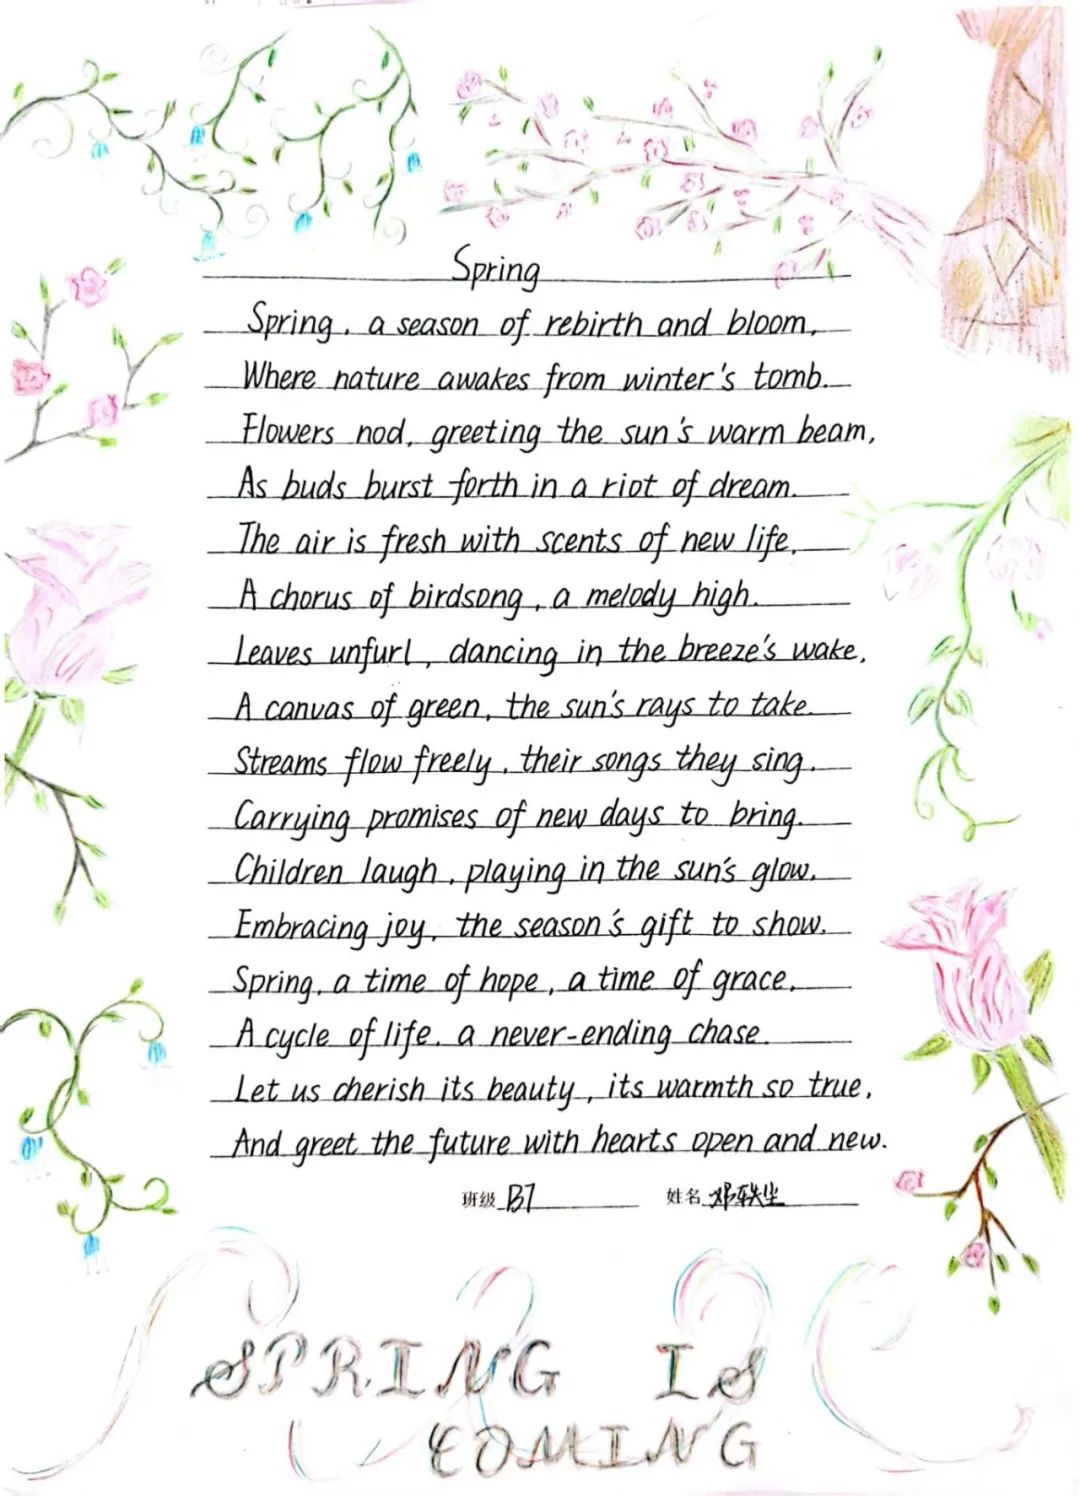 Spring
Spring, a season of rebirth and bloom,
Where nature awakes from winter's tomb.
Flowers nod, greeting the sun's warm beam,
As buds burst forth in a riot of dream.
The air is fresh with scents of new life,
A chorus of birdsong, a melody high.
Leaves unfurl, dancing in the breeze's wake,
A canvas of green, the sun's rays to take.
Streams flow freely, their songs they sing.
Carrying promises of new days to bring.
Children laugh, playing in the sun's glow,
Embracing joy, the season's gift to show.
Spring, a time of hope, a time of grace,
A cycle of life, a never-ending chase.
Let us cherish its beauty, its warmth so true,
And greet the future with hearts open and new.
班级 B7 姓名 邓轶尘
SPRING IS
COMING